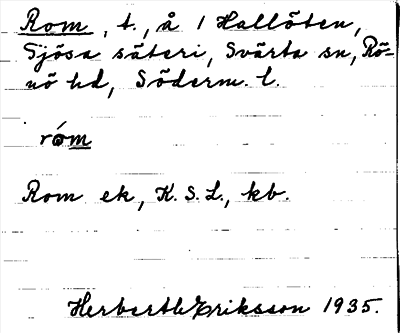 Rom, t., å 1 Hallöten,
Sjösa säteri, Svärta sn, Rö-
nö hd, Söderm. l.
róm
Rom ek, K. S. L., kb.
Herberth Eriksson 1935.